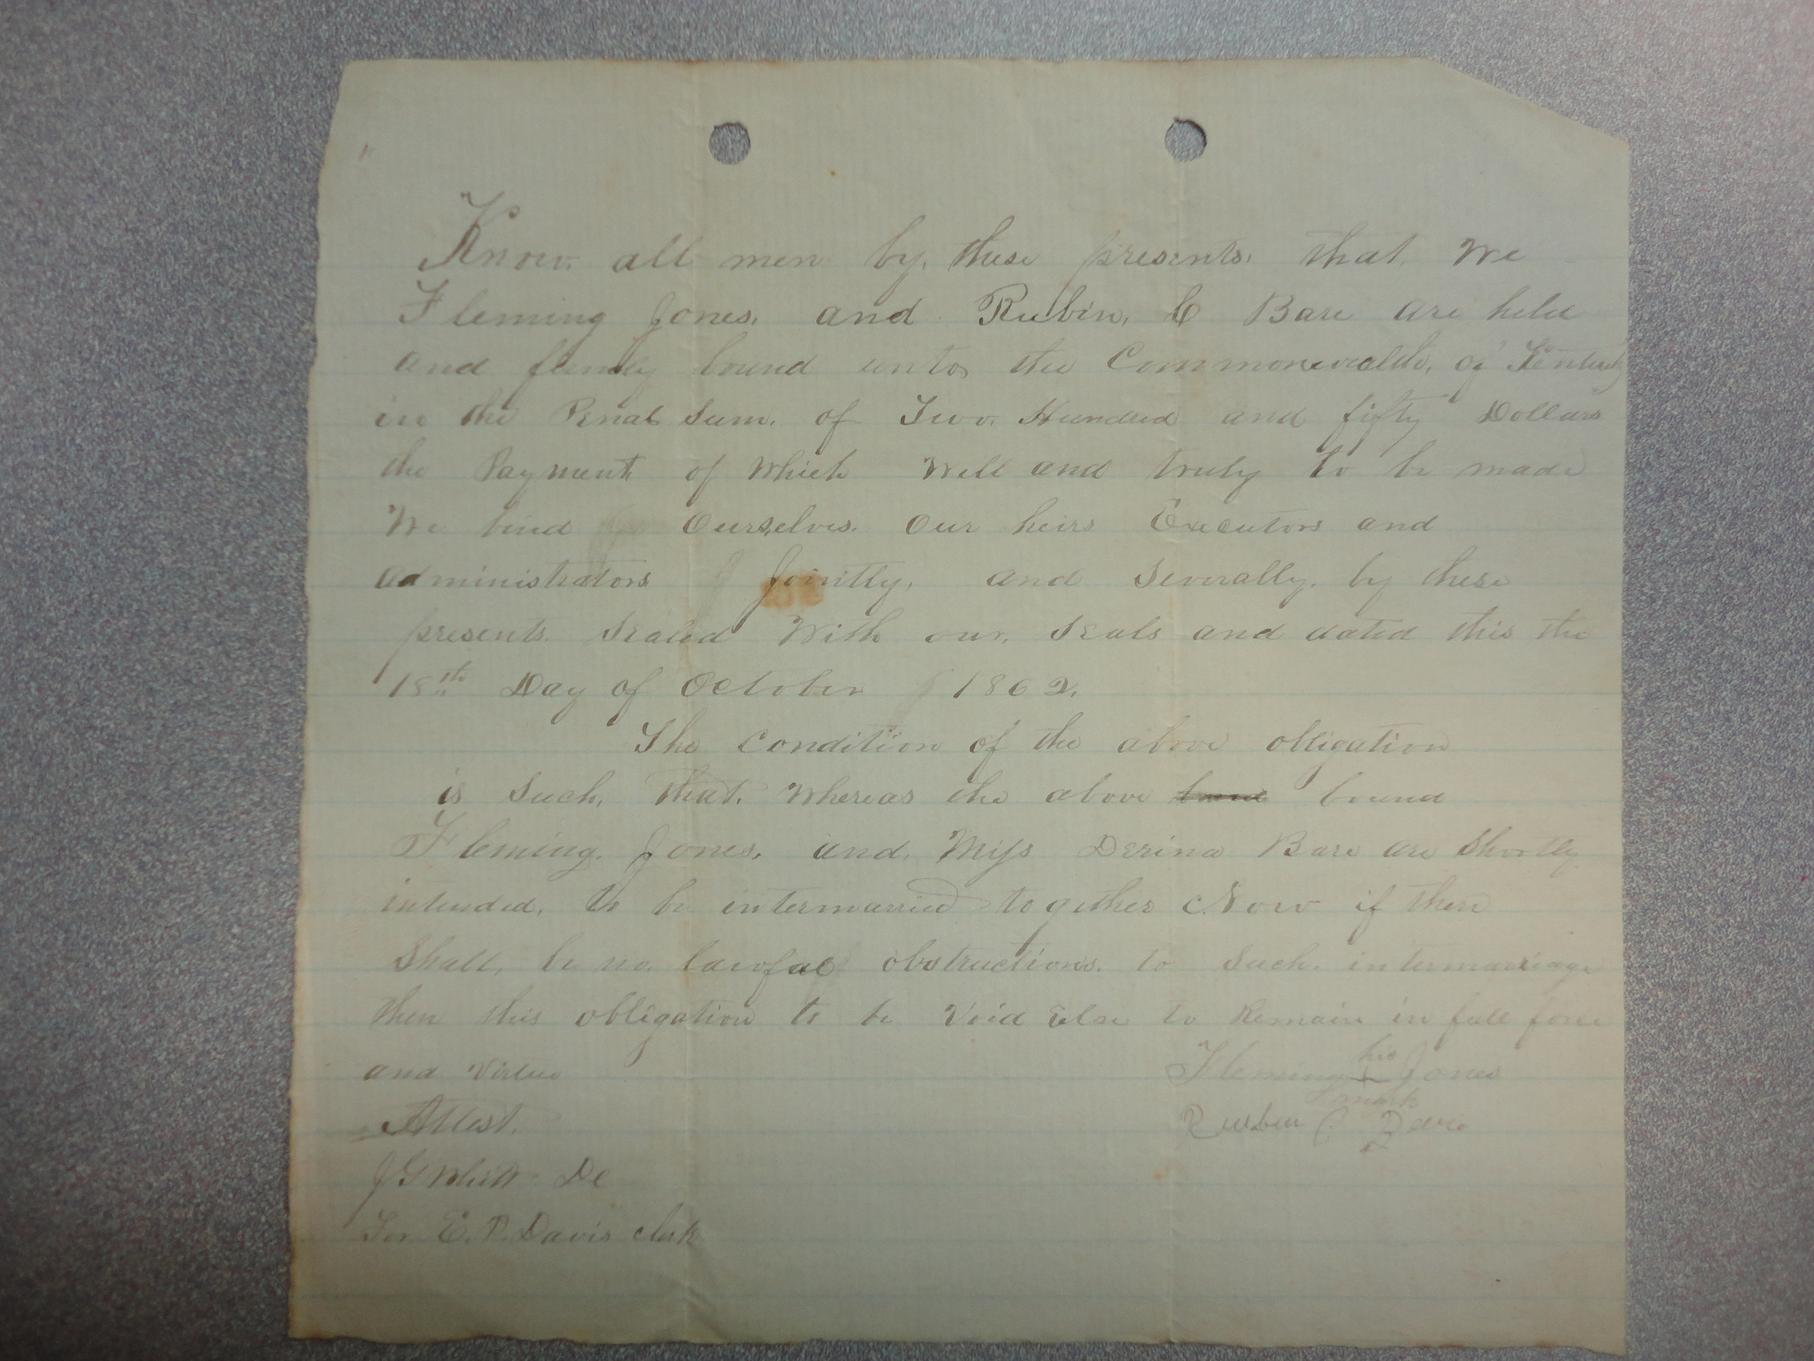 Know all men by these presents, that We
Fleming Jones, and Rubin, C Bare are held
and firmly bound unto the Commonwealth, of Kentucky
in the Penal Sum, of Two Hundred and fifty Dollars
the Payment of Which Well and truly to be made
We bind Ourselves Our heirs Executors and
administrators Jointly, and Severally, by these
presents Sealed With our, Seals and dated this the
18th Day of October 1862.
The Condition of the above obligation
is Such, that, Whereas the above bound bound
Fleming Jones, and, Miss Derina Bare are Shortly
intended, to be intermarried together Now if there
Shall, be no, lawful obstructions, to Such intermarriage
then this obligation to be Void else to Remain in full force
and Virtue
Fleming his X mark Jones
Attest.
Reuben C Bare
J G Whitt DC
For E. P. Davis clerk